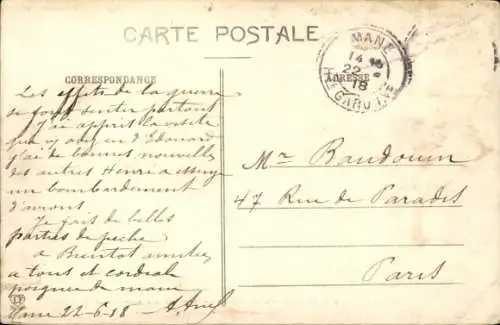 CARTE POSTALE
CORRESPONDANCE
ADRESSE
MANE
14
22
18
HTE GARONNE
Les effets de la guerre
se font sentir partout
J'ai appris la visite
que vy any eu d'Edouard
J'ai de bonnes nouvelles
des autres Henri a essuye
un bombardement
d'avions
Je fais de belles
parties de peche
a Bientot amities
a tous et cordiale
poignee de main
Mane 22-6-18
Mr Baudouin
47 Rue de Paradis
Paris